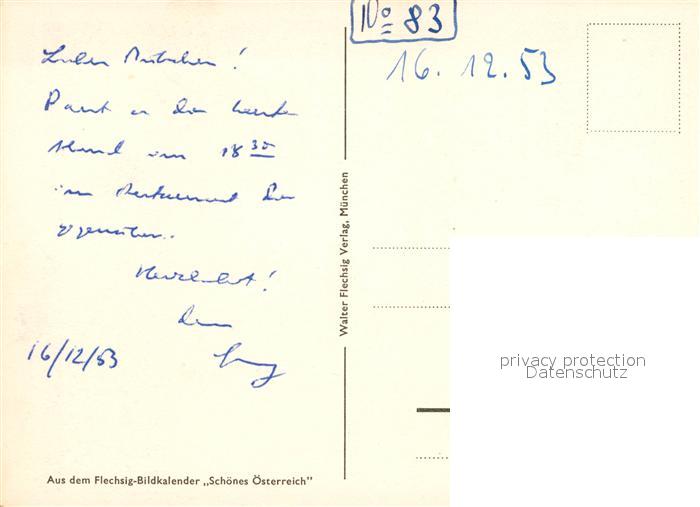 Nº 83
16.12.53
Lieber
Paßt es dir heute
Abend um 18 30
im Restaurant Dir
gegenüber.
Herzlichst!
dein
16/12/53
Walter Flechsig Verlag, München
privacy protection
Datenschutz
Aus dem Flechsig-Bildkalender „Schönes Österreich"